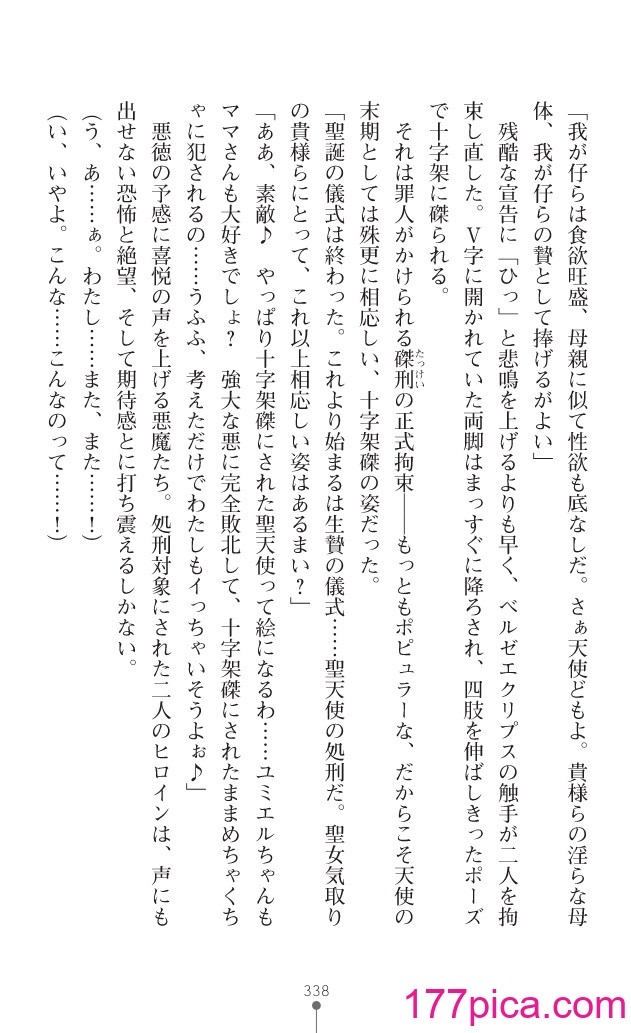 「我が仔らは食欲旺盛、母親に似て性欲も底なしだ。さぁ天使どもよ。貴様らの淫らな母
体、我が仔らの贄として捧げるがよい」
　残酷な宣告に「ひっ」と悲鳴を上げるよりも早く、ベルゼエクリプスの触手が二人を拘
束し直した。Ｖ字に開かれていた両脚はまっすぐに降ろされ、四肢を伸ばしきったポーズ
で十字架に磔られる。
　それは罪人がかけられる磔刑の正式拘束――もっともポピュラーな、だからこそ天使の
たっけい
末期としては殊更に相応しい、十字架磔の姿だった。
「聖誕の儀式は終わった。これより始まるは生贄の儀式……聖天使の処刑だ。聖女気取り
の貴様らにとって、これ以上相応しい姿はあるまい？」
「ああ、素敵♪　やっぱり十字架磔にされた聖天使って絵になるわ……ユミエルちゃんも
ママさんも大好きでしょ？　強大な悪に完全敗北して、十字架磔にされたままめちゃくち
ゃに犯されるの……うふふ、考えただけでわたしもイっちゃいそうよぉ♪」
　悪徳の予感に喜悦の声を上げる悪魔たち。処刑対象にされた二人のヒロインは、声にも
出せない恐怖と絶望、そして期待感とに打ち震えるしかない。
（う、あ……ぁ。わたし……また、また……！）
（い、いやよ。こんな……こんなのって……！）
338
177pica.com